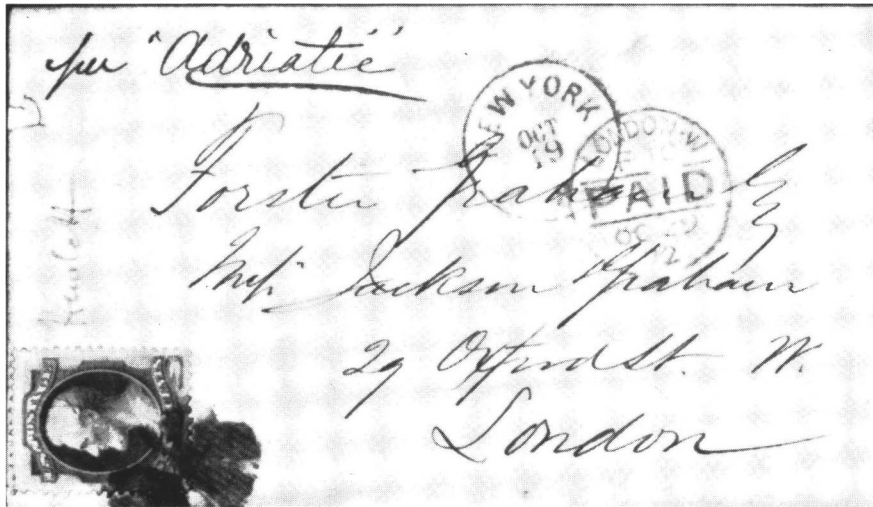 per "Adriatic"
NEW YORK
OCT
19
LONDON-W
PAID
OC 29
72
Forster Graham Esq
Jackson Graham
29 Oxford St. W.
London